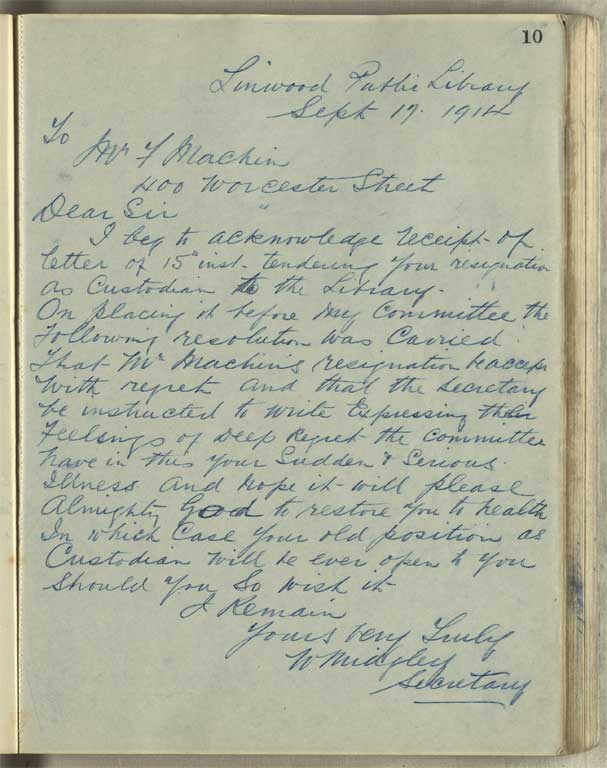 10
Linwood Public Library
Sept 17. 1914
To
Mr F Machin
400 Worcester Street
Dear Sir
I beg to acknowledge receipt of
letter of 15" inst. tendering your resignation
as Custodian to the Library.
On placing it before my Committee the
Following resolution was Carried.
That Mr Machins resignation be accept
With regret and that the Secretary
be instructed to write Expressing their
Feelings of Deep Regret the Committee
have in this your Sudden & Serious
Illness and hope it will please
Almighty God to restore you to health
In which Case your old position as
Custodian will be ever open to you
Should you So wish it
I Remain
Yours Very Truly
W Midgley
Secretary